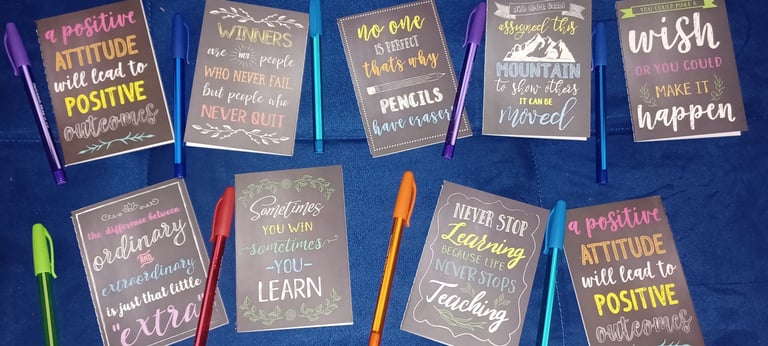 a positive
ATTITUDE
will lead to
POSITIVE
outcomes
WINNERS
are NOT people
WHO NEVER FAIL,
but people who
NEVER QUIT
no one
IS PERFECT
that's why
PENCILS
have erasers
YOU HAVE BEEN
assigned this
MOUNTAIN
to show others
IT CAN BE
moved
YOU COULD MAKE A
wish
OR YOU COULD
MAKE IT
happen
the difference between
ordinary
AND
extraordinary
is just that little
"extra"
Sometimes
YOU WIN
sometimes
-YOU-
LEARN
NEVER STOP
Learning
BECAUSE LIFE
NEVER STOPS
Teaching
a positive
ATTITUDE
will lead to
POSITIVE
outcomes